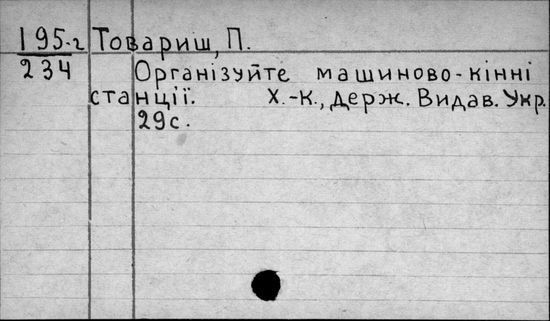 195-г Товариш, П.
234
Організуйте машиново-кінні
станції. Х.-К., Держ. Видав. Укр.
29с.